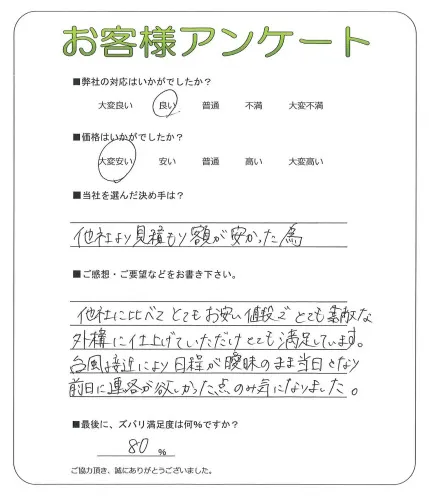 お客様アンケート
■弊社の対応はいかがでしたか？
大変良い 良い 普通 不満 大変不満
■価格はいかがでしたか？
大変安い 安い 普通 高い 大変高い
■当社を選んだ決め手は？
他社より見積もり額が安かった為
■ご感想・ご要望などをお書き下さい。
他社に比べてとてもお安い値段でとても素敵な
外構に仕上げていただけとても満足しています。
台風接近により日程が曖昧のまま当日となり
前日に連絡が欲しかった点のみ気になりました。
■最後に、ズバリ満足度は何％ですか？
80 ％
ご協力頂き、誠にありがとうございました。